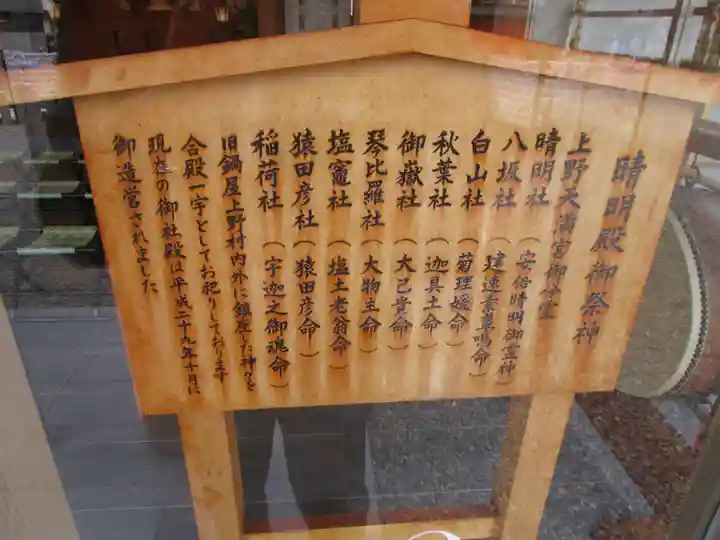 晴明殿御祭神
上野天満宮御合霊
晴明社(安倍晴明御霊神)
八坂社(建速素盞鳴命)
白山社(菊理媛命)
秋葉社(迦具土命)
御嶽社(大己貴命)
琴比羅社(大物主命)
塩竈社(塩土老翁命)
猿田彦社(猿田彦命)
稲荷社(宇迦之御魂命)
旧鍋屋上野村内外に鎮座した神々を
合殿一宇としてお祀りしております
現在の御社殿は平成二十九年十月に
御造営されました